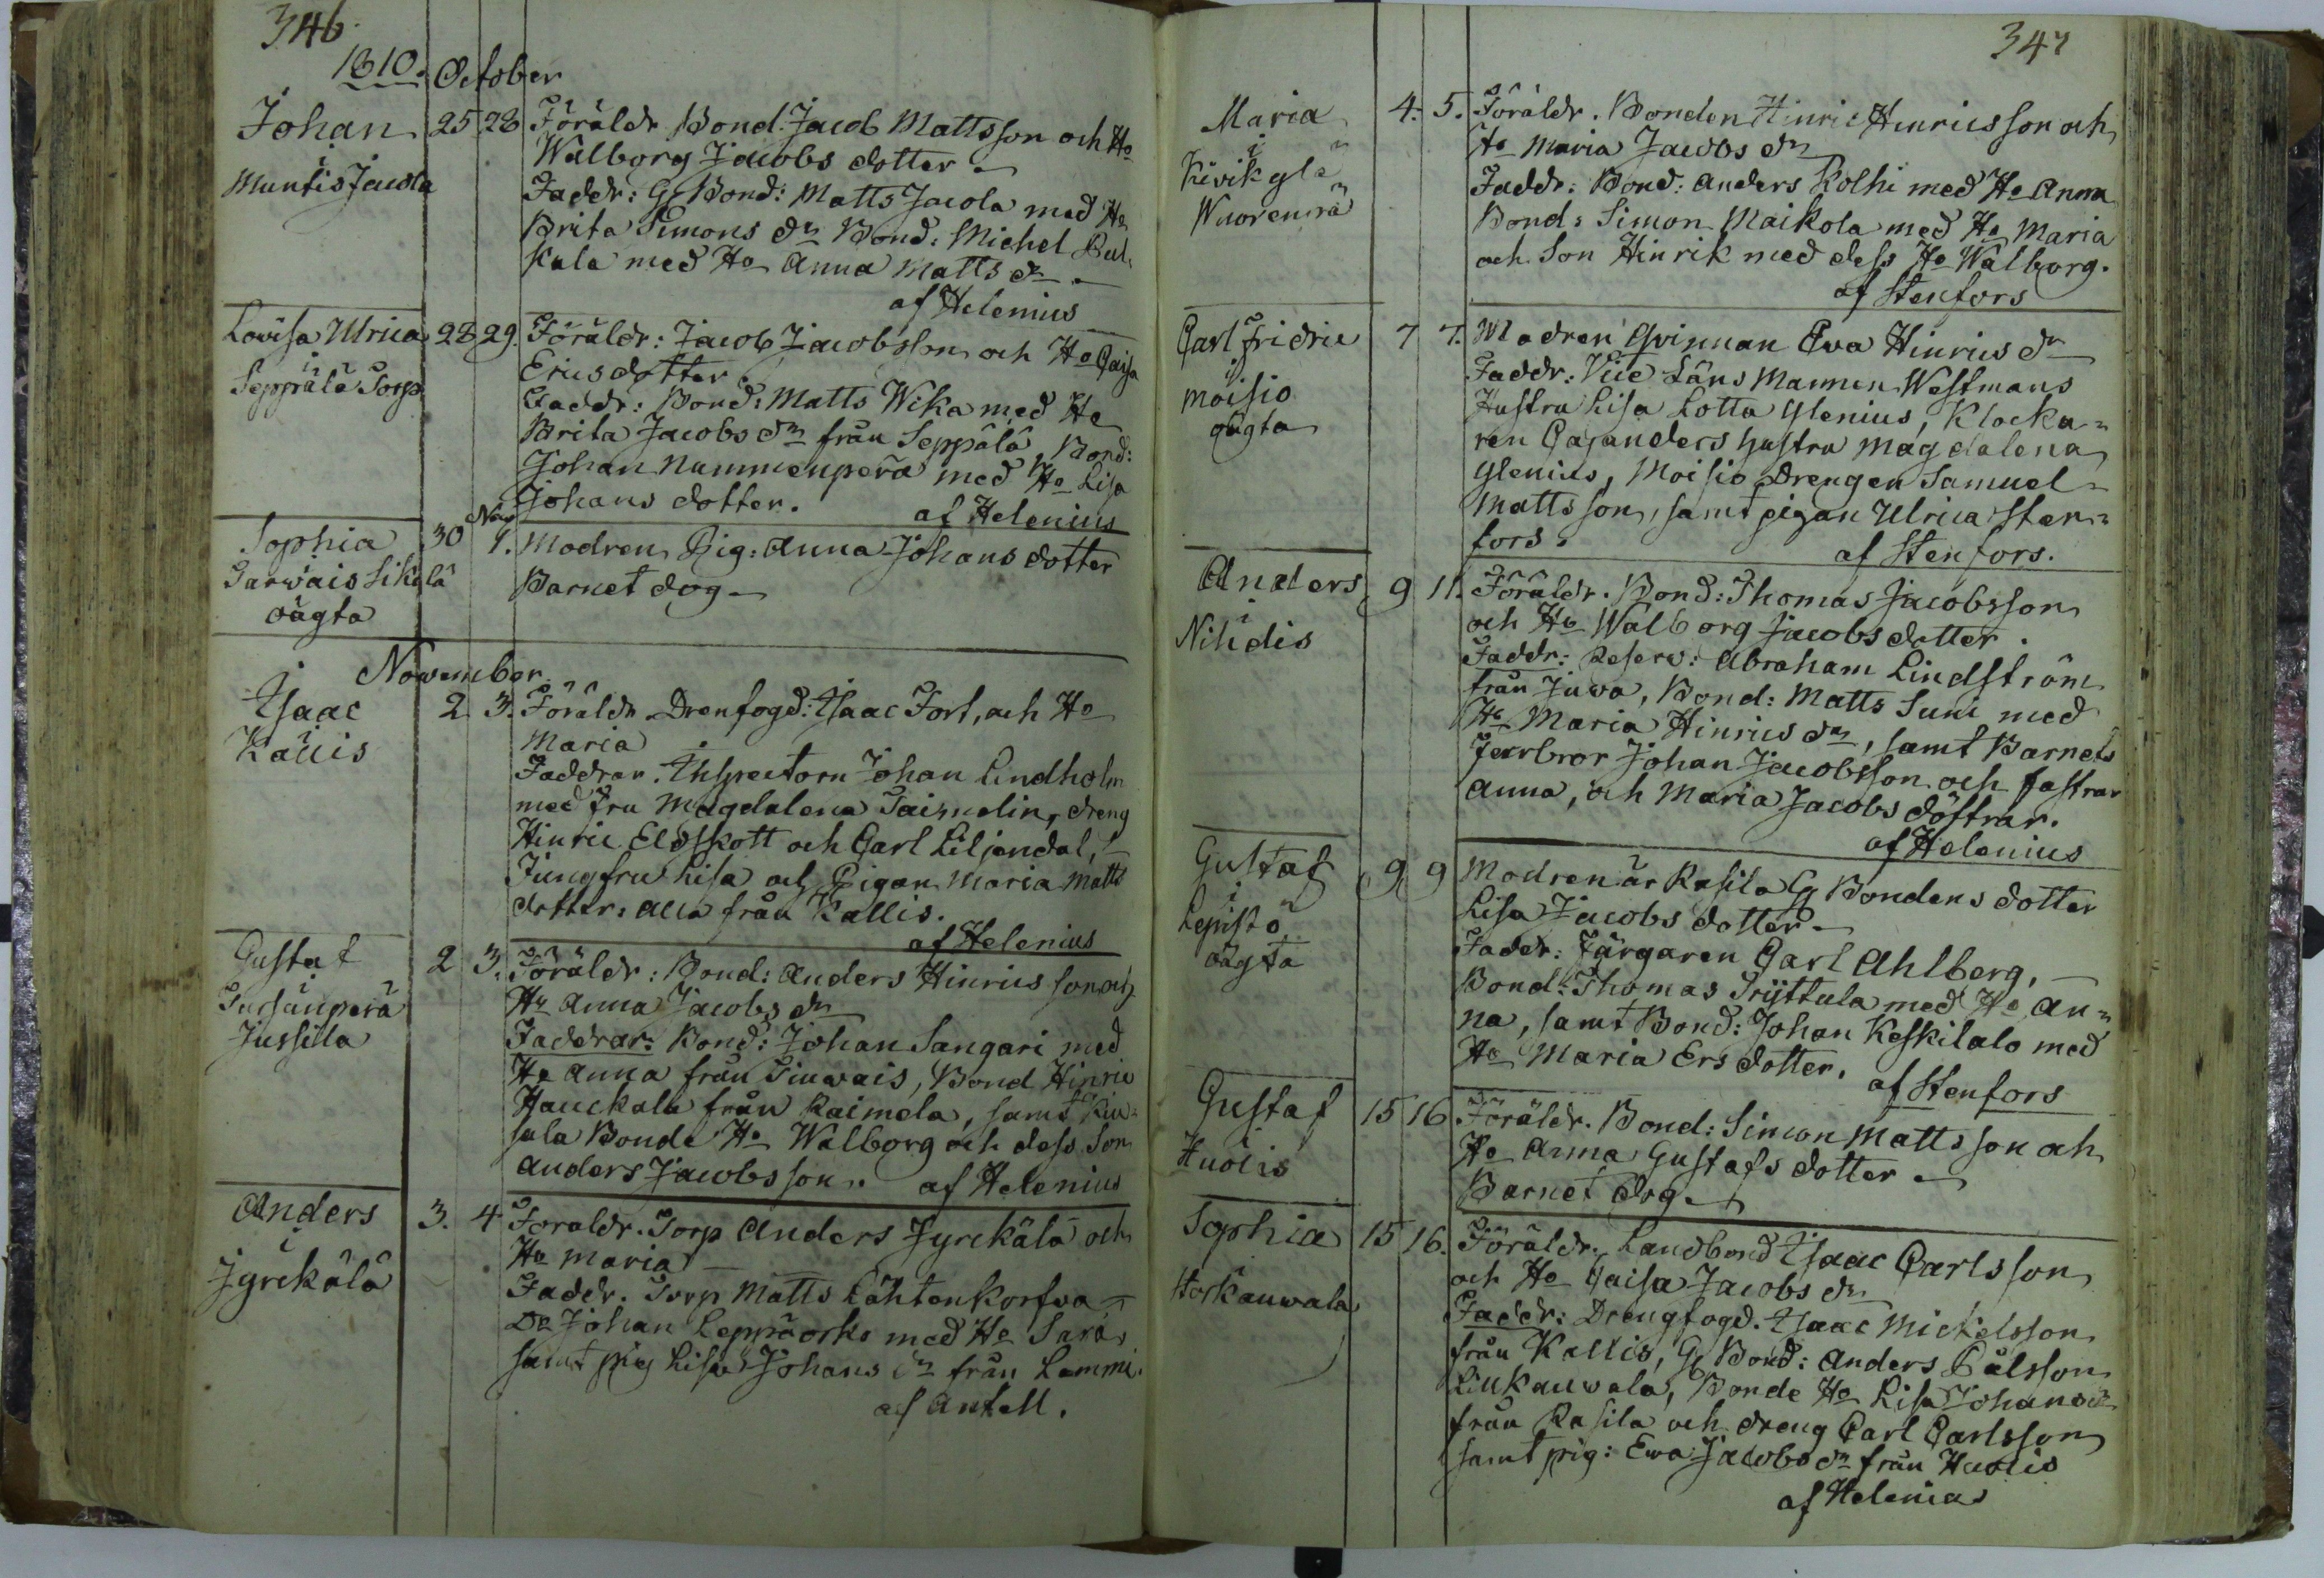 346
1810. October
Johan
i
Muntis Jacola
25 28 Föräldr Bond. Jacob Mattsson och Ho
Walborg Jacobs dotter
Faddr: G Bond: Matts Jacola med Ho
Brita Simons dr Bond: Michel
Kala med Ho Anna Matts dr
af Helenius
Lovisa Ulrica
i
Seppälä Torp
28 29. Föräldr: Jacob Jacobsson och Ho Caisa
Ericsdotter
Faddr: Bond: Matts Wika med Ho
Brita Jacobs dr från Seppälä, Bond:
Johan Nummenperä med Ho Lisa
Johans dotter.
af Helenius
Sophia
i
Sarwais Sikilä
oägta
30 Nov 1. Modren Pig: Anna Johans dotter
Barnet dog
November
Isaac
i
Kallis
2 3. Föräldr. Drenfogd: Isaac Fort, och Ho
Maria
Faddrar. Inspectorn Johan Lindholm
med Fru Magdalena Taimelin, dreng
Hinric Eldskott och Carl Liljendal,
Jungfru Lisa och Pigan Maria Matts
dotter: alla från Kallis.
af Helenius
Gustaf
i
Tursänperä
Jussila
2 3. Föräldr: Bond: Anders Hinrics son och
Ho Anna Jacobs dr
Faddrar: Bond: Johan Sangari med
Ho Anna från Siuwais, Bond Hinric
Hauckala från Raimela, samt Kiu-
sala Bonde Ho Walborg och dess Son
Anders Jacobsson.
af Helenius
Anders
i
Jyrckälä
3. 4. Föraldr. Torp Anders Jyrckälä och
Ho Maria
Faddr. Torp Matts Lähtenkorfwa
Do Johan Leppäorko med Ho Sara,
samt pig Lisa Johans dr från Lammi.
af Antell.
347
Maria
i
Kivikylä
Wuorenrä
4. 5. Föräldr. Bonden Hinric Hinricsson och
Ho Maria Jacobs dr
Faddr: Bond: Anders Kolhi med Ho Anna
Bond: Simon Maikola med Ho Maria
och Son Hinrik med dess Ho Walborg.
af Stenfors
Carl Fridric
i
Moisio
oägta
7 7. Modren Qvinnan Eva Hinrics dr
Faddr: Vice Läns Mannen Westmans
Hustru Lisa Lotta Ylenius, Klocka-
ren Cajanders hustru Magdalena
Ylenius, Moisio Drengen Samuel
Mattsson, samt pigan Ulrica Sten-
fors.
af Stenfors.
Anders
i
Nihdis
9 11. Föräldr. Bond: Thomas Jacobsson
och Ho Walborg Jacobs dotter
Faddr: Reserv: Abraham Lindström
från Juva, Bond: Matts Suni med
Ho Maria Hinrics dr, samt Barnets
Farbror Johan Jacobsson och fastrar
Anna, och Maria Jacobs döttrar.
af Helenius
Gustaf
i
Lepistö
oägta
9 9 Modren är Rasila G Bondens dotter
Lisa Jacobs dotter
Faddr: Färgaren Carl Ahlberg,
Bond: Thomas Pryttula med Ho An-
na, samt Bond: Johan Keskitalo med
Ho Maria Ers dotter.
af Stenfors
Gustaf
i
Huolis
15 16 Föräldr. Bond: Simon Matts son och
Ho Anna Gustafs dotter
Barnet dog
Sophia
i
Horkanwala
15 16. Föräldr. Landbond Isaac Carlsson
och Ho Caisa Jacobs dr
Faddr: Drengfogd. Isaac Mickelsson
från Kallis, G Bond: Anders Pålsson
Liukanwala, Bonde Ho Lisa Johans dr
från Rasila och dreng Carl Carlsson
samt pig: Ewa Jacobs dr från Huolis
af Helenius